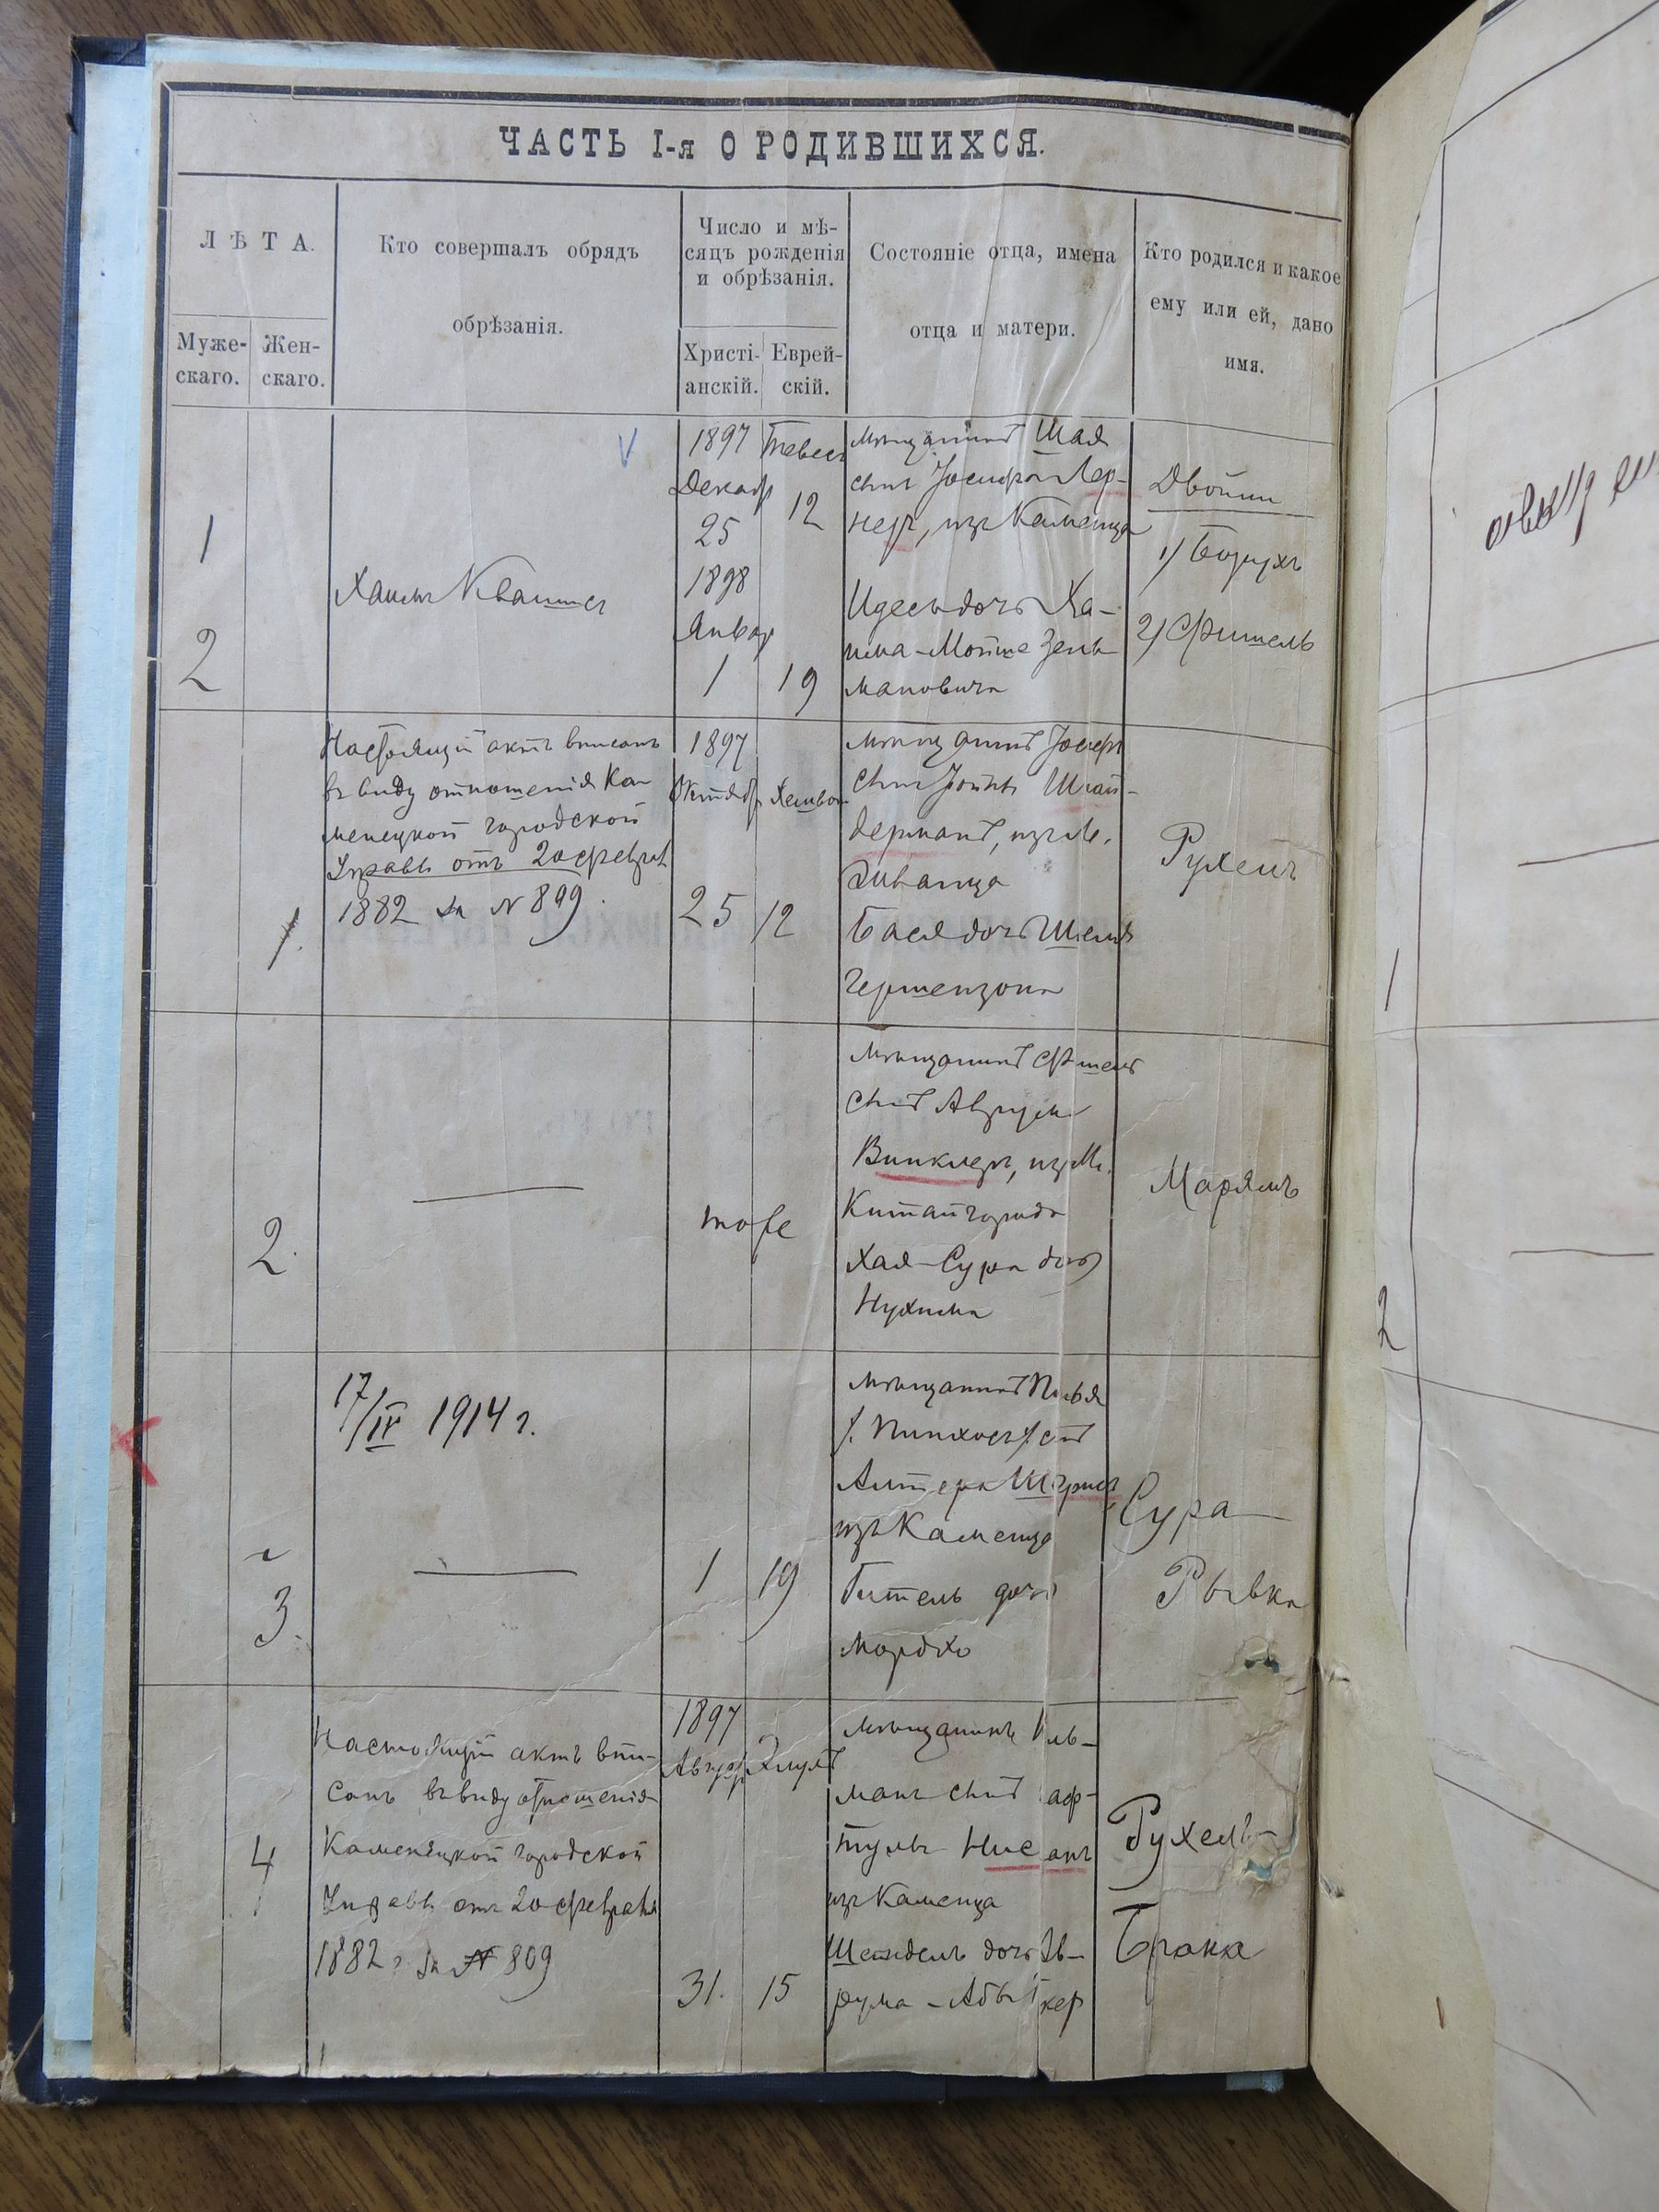 ЧАСТЬ I-я О РОДИВШИХСЯ.
ЛѢТА.
Муже-
скаго.
Жен-
скаго.
Кто совершалъ обрядъ
обрѣзанія.
Число и мѣ-
сяцъ рожденія
и обрѣзанія.
Христі-
анскій.
Еврей-
скій.
Состояніе отца, имена
отца и матери.
Кто родился и какое
ему или ей, дано
имя.
1
2
Хаимъ
1897
Декабр
25
1898
Январ
1
Тевесъ
12
19
мѣщанинъ Шая
сынъ Іосифа Лер-
неръ, изъ Каменца
Идесъ дочь Ха-
има-Мойше Зель
мановича
Двойни
1) Борухъ
2) Фишель
1.
Настоящій актъ вписанъ
въ виду отношенія Ка
менецкой городской
Управы отъ 20 февраля
1882 за № 899.
1897
Октябр
25
12
мѣщанинъ Іосифъ
сынъ Шнай-
дерманъ, изъ м.
Жванца
Бася дочь
Гершензона
Рухель
2.
тоже
мѣщанинъ Фишель
сынъ Аврума
Винклеръ, изъ м.
Китайгорода
Хая-Сура дочь
Нухима
Марямъ
3.
17/IV 1914 г.
1
19
мѣщанинъ
/. Пинхосъ ./ сынъ
Алтера
изъ Каменца
Гитель дочь
Мордко
Сура
Рывка
4
Настоящій актъ впи-
санъ въ виду отношенія
Каменецкой городской
Управы отъ 20 февраля
1882 г. за № 809
1897
Август
31.
Элулъ
15
мѣщанинъ
манъ сынъ
изъ Каменца
Шейндель дочь Ав-
рума-
Рухель-
Брана
1
2